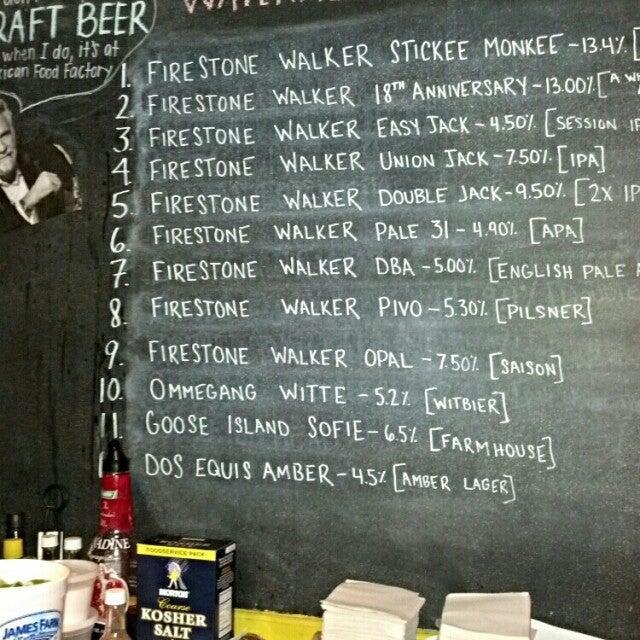 RAFT BEER
when I do, it's at
Food Factory
1. FIRESTONE WALKER STICKEE MONKEE - 13.4% [
2. FIRESTONE WALKER 18TH ANNIVERSARY - 13.00% [A
3. FIRESTONE WALKER EASY JACK - 4.50% [SESSION
4. FIRESTONE WALKER UNION JACK - 7.50% [IPA]
5. FIRESTONE WALKER DOUBLE JACK - 9.50% [2X
6. FIRESTONE WALKER PALE 31 - 4.90% [APA]
7. FIRESTONE WALKER DBA - 5.00% [ENGLISH PALE
8. FIRESTONE WALKER PIVO - 5.30% [PILSNER]
9. FIRESTONE WALKER OPAL - 7.50% [SAISON]
10. OMMEGANG WITTE - 5.2% [WITBIER]
11 GOOSE ISLAND SOFIE - 6.5% [FARMHOUSE]
DOS EQUIS AMBER - 4.5% [AMBER LAGER]
FOODSERVICE PACK
MORTON
Coarse
KOSHER
SALT
JAMES FAR